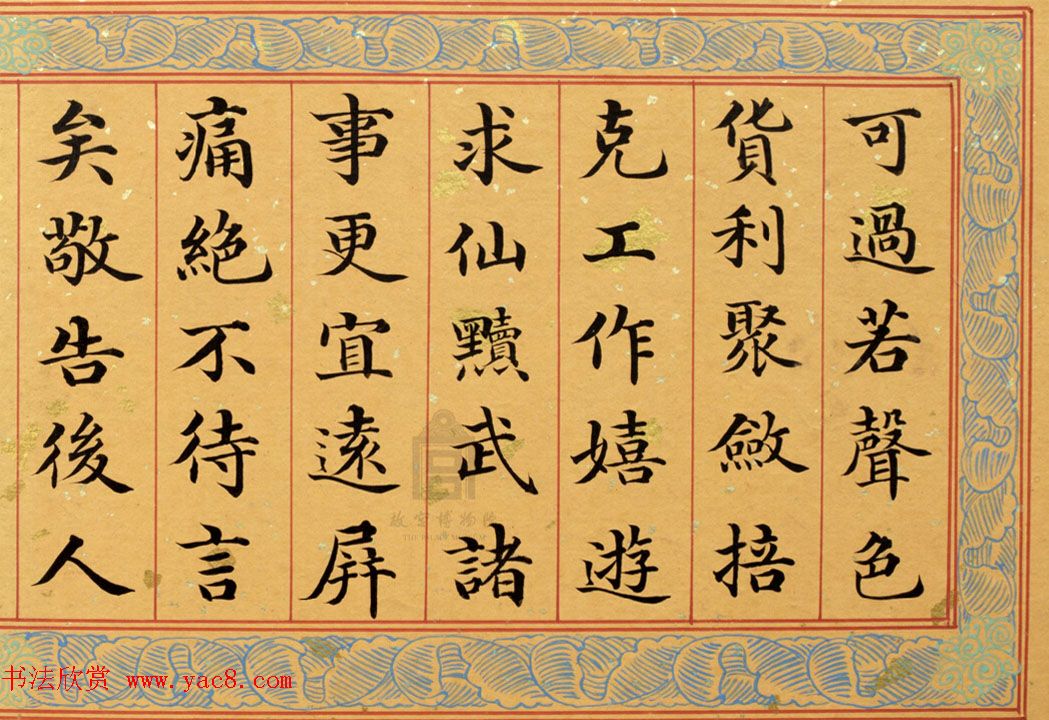 可過若聲色
貨利聚斂掊
克工作嬉遊
求仙黷武諸
事更宜遠屏
痛絕不待言
矣敬告後人
故宮博物院
THE PALACE MUSEUM
书法欣赏 www.yac8.com